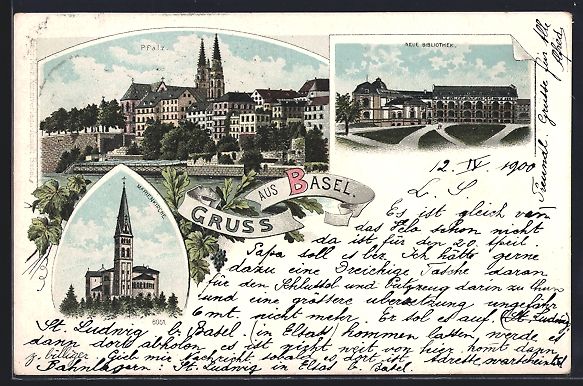 Pfalz.
NEUE BIBLIOTHEK.
MARIENKIRCHE.
GRUSS AUS BASEL.
Freundl. Grüsse für Alle
Alfred
12. IV. 1900
L. S.
Es ist gleich
das Velo schon nicht
da ist für den 20. April.
Papa soll es Ich hätte gerne
dazu eine Dreieckige Tasche daran
für den Schlüssel und Putzzeug darin zu thun
und eine grössere übersetzung ungefähr
nicht mehr. Er sol es auf (St. Ludwig
St. Ludwig b. Basel (in Elsas) kommen lassen werde es
dann dort abholen es ist nicht weit von hier, komt dann
z. billiger. Gieb mir Nachricht sobald es dort ist. Adresse
Bahnlagern: St. Ludwig in Elsas b. Basel